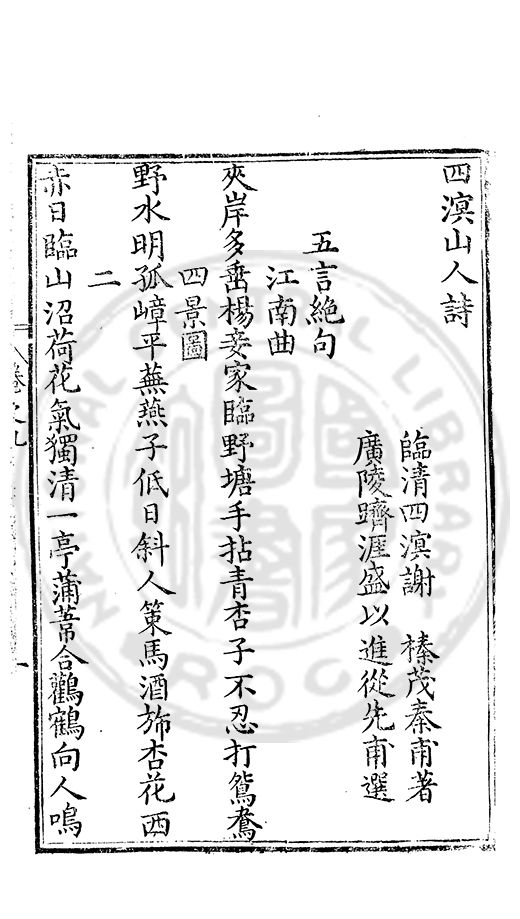 四溟山人詩
臨清四溟謝 榛茂秦甫著
廣陵躋涯盛以進從先甫選
五言絕句
江南曲
夾岸多垂楊妾家臨野塘手拈青杏子不忍打鴛鴦
四景圖
野水明孤嶂平蕪燕子低日斜人策馬酒斾杏花西
二
赤日臨山沼荷花氣獨清一亭蒲葦合鸛鶴向人鳴
卷之九
一
NATIONAL CENTRAL LIBRARY